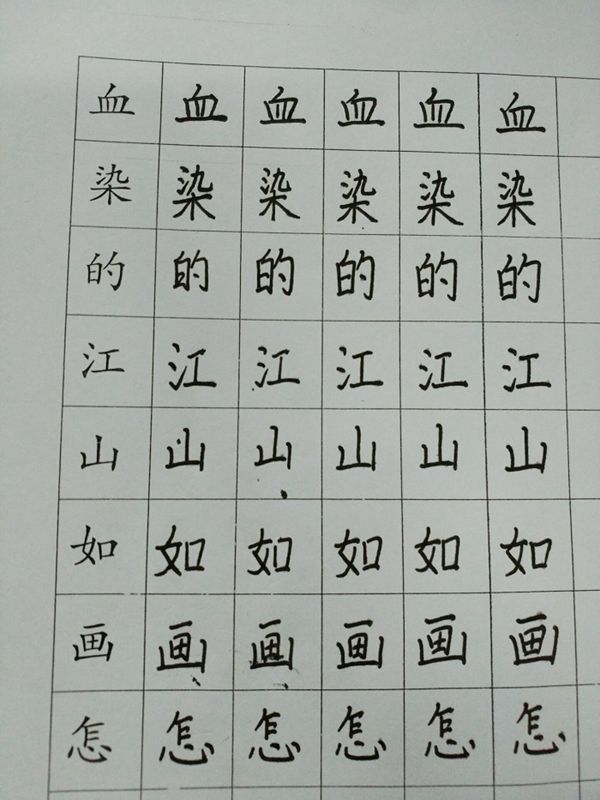 血 血 血 血 血 血
染 染 染 染 染 染
的 的 的 的 的 的
江 江 江 江 江 江
山 山 山 山 山 山
如 如 如 如 如 如
画 画 画 画 画 画
怎 怎 怎 怎 怎 怎